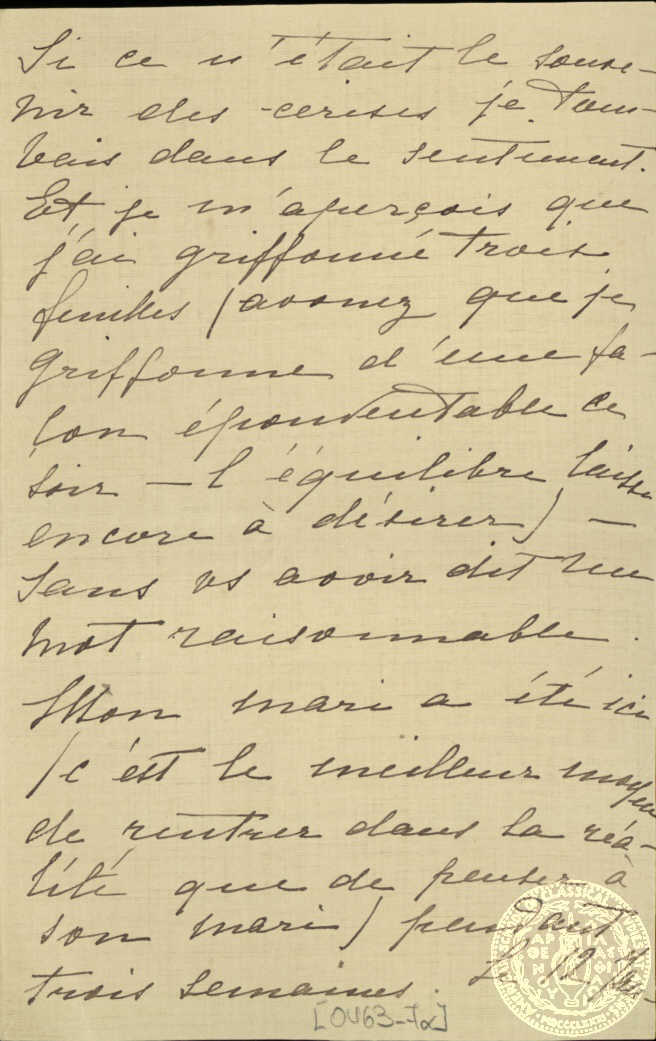 Si ce n'était le souve-
nir des cerises je tom-
bais dans le sentiment.
Et je m'aperçois que
j'ai griffonné trois
feuilles (avouez que je
griffonne d'une fa-
çon épouventable ce
soir – l'équilibre laisse
encore à désirer) –
sans vs avoir dit un
mot raisonnable.
Mon mari a été ici
(c'est le meilleur moyen
de rentrer dans la réa-
lité que de penser à
son mari) pendant
trois semaines. Le 12
[0463-7α]